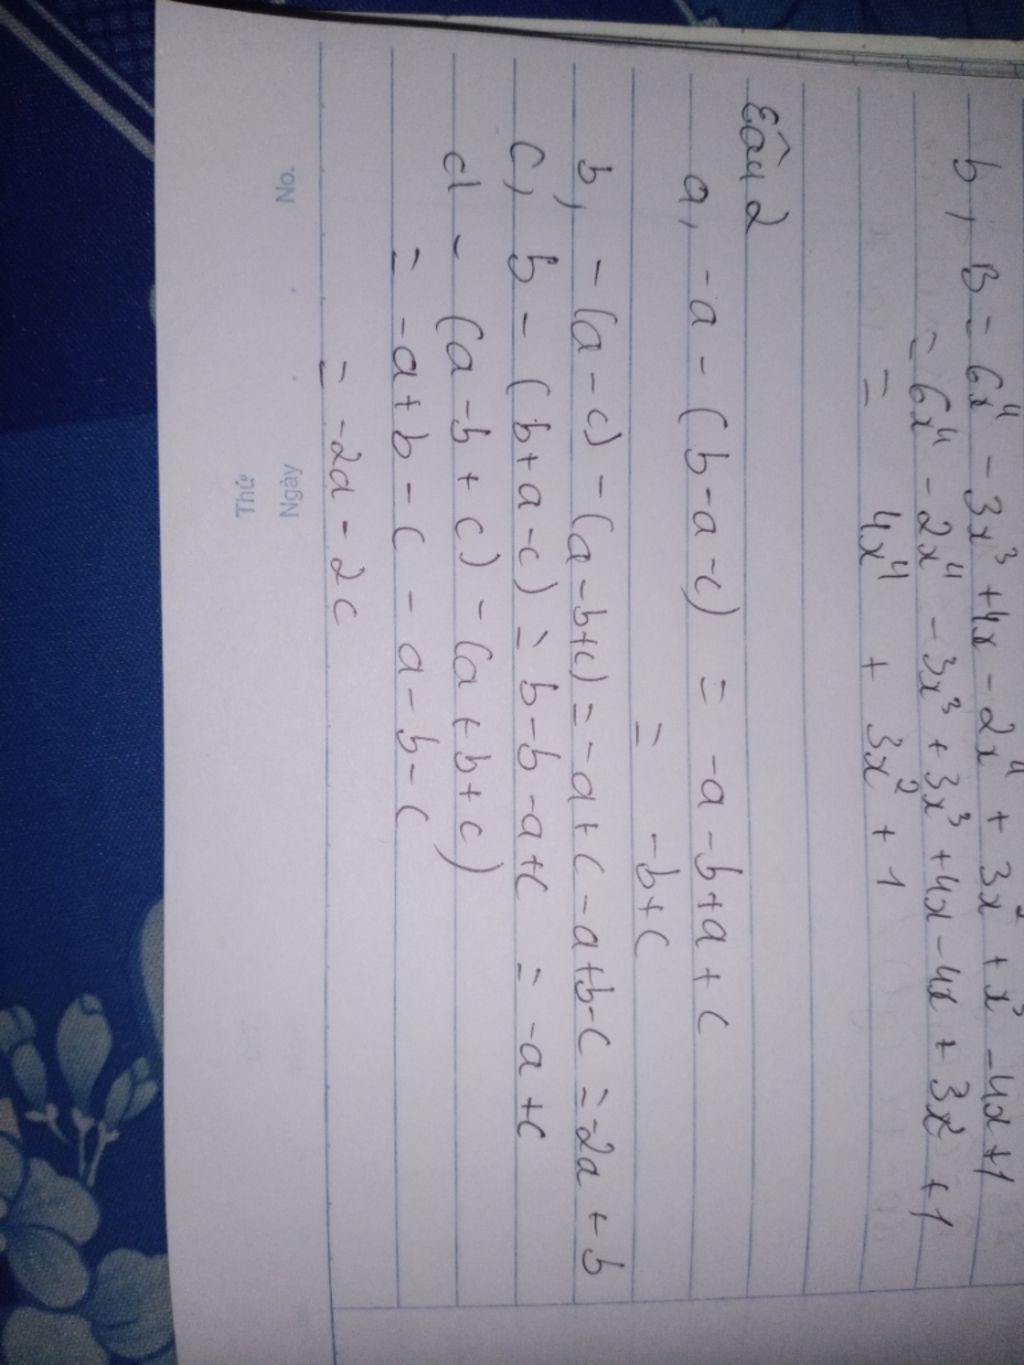 b, B = 6x⁴ - 3x³ + 4x - 2x⁴ + 3x² + x³ - 4x + 1
= 6x⁴ - 2x⁴ - 3x³ + 3x³ + 4x - 4x + 3x² + 1
= 4x⁴ + 3x² + 1
Câu 2
a, -a - (b - a - c) = -a - b + a + c
= -b + c
b, - (a - c) - (a - b + c) = -a + c - a + b - c = -2a + b
c, b - (b + a - c) = b - b - a + c = -a + c
d - (a - b + c) - (a + b + c)
= -a + b - c - a - b - c
= -2a - 2c
Thứ
Ngày
No.